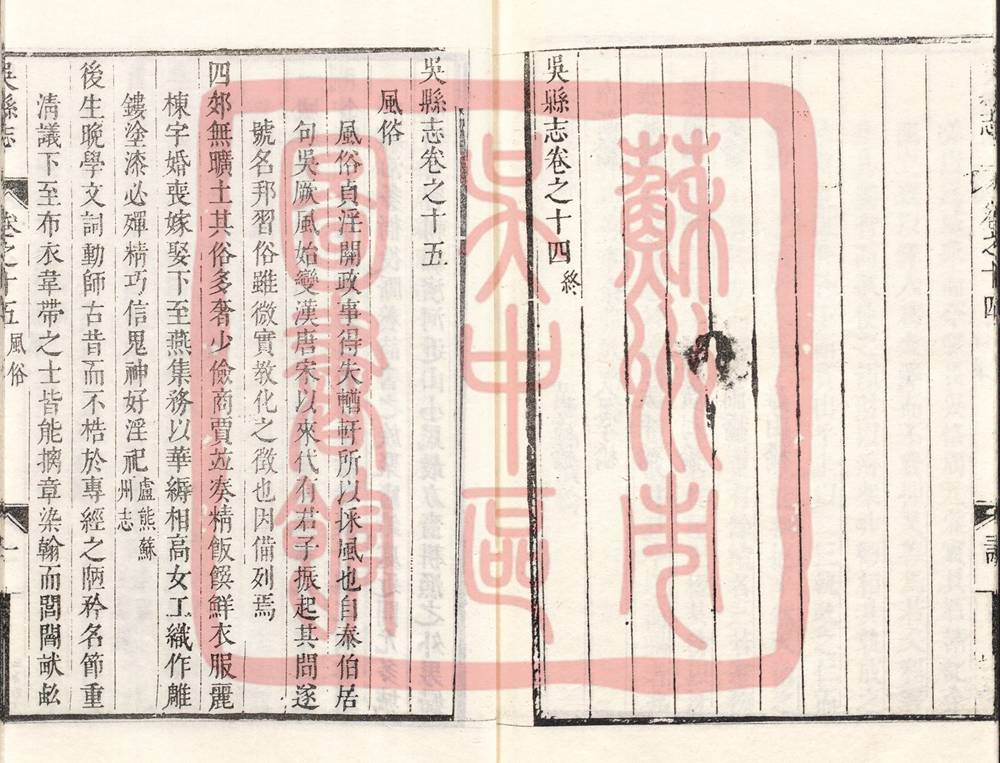 志 卷之十四
吳縣志卷之十四終
吳縣志卷之十五
風俗
風俗貞淫關政事得失輶軒所以採風也自泰伯居
句吳厥風始變漢唐宋以來代有君子振起其間遂
號名邦習俗雖微實敎化之徵也因備列焉
四郊無曠土其俗多奢少儉商賈並奏精飯饌鮮衣服麗
棟宇婚喪嫁娶下至燕集務以華縟相高女工織作雕
鏤塗漆必殫精巧信鬼神好淫祀盧熊蘇州志
後生晚學文詞動師古昔而不梏於專經之陋矜名節重
清議下至布衣韋帶之士皆能摛章染翰而閭閻畎畝
吳縣志 卷之十五 風俗 一
蘇州市
吳中區
圖書館